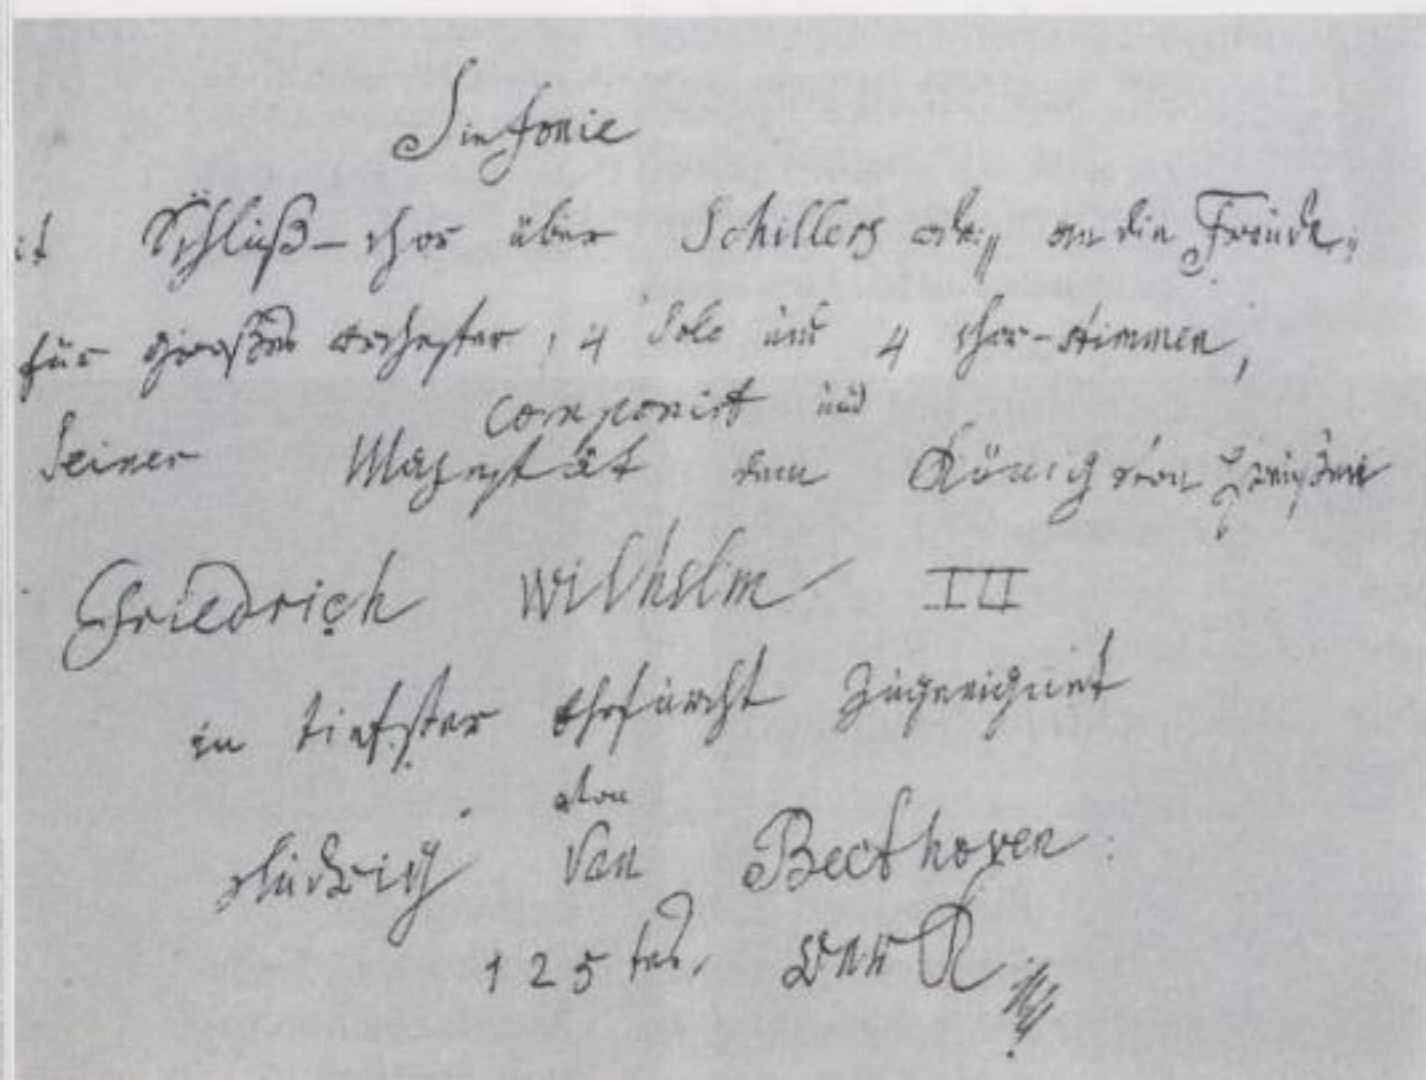 Sinfonie
it Schluß-chor über Schillers ode, „an die Freude„
für großes orchester, 4 Solo und 4 chor-stimmen,
componirt und
Seiner Majestät dem König von Preußen
Friedrich Wilhelm III
in tiefster Ehrfurcht zugeeignet
von
Ludwig Van Beethoven
125tes. Werk